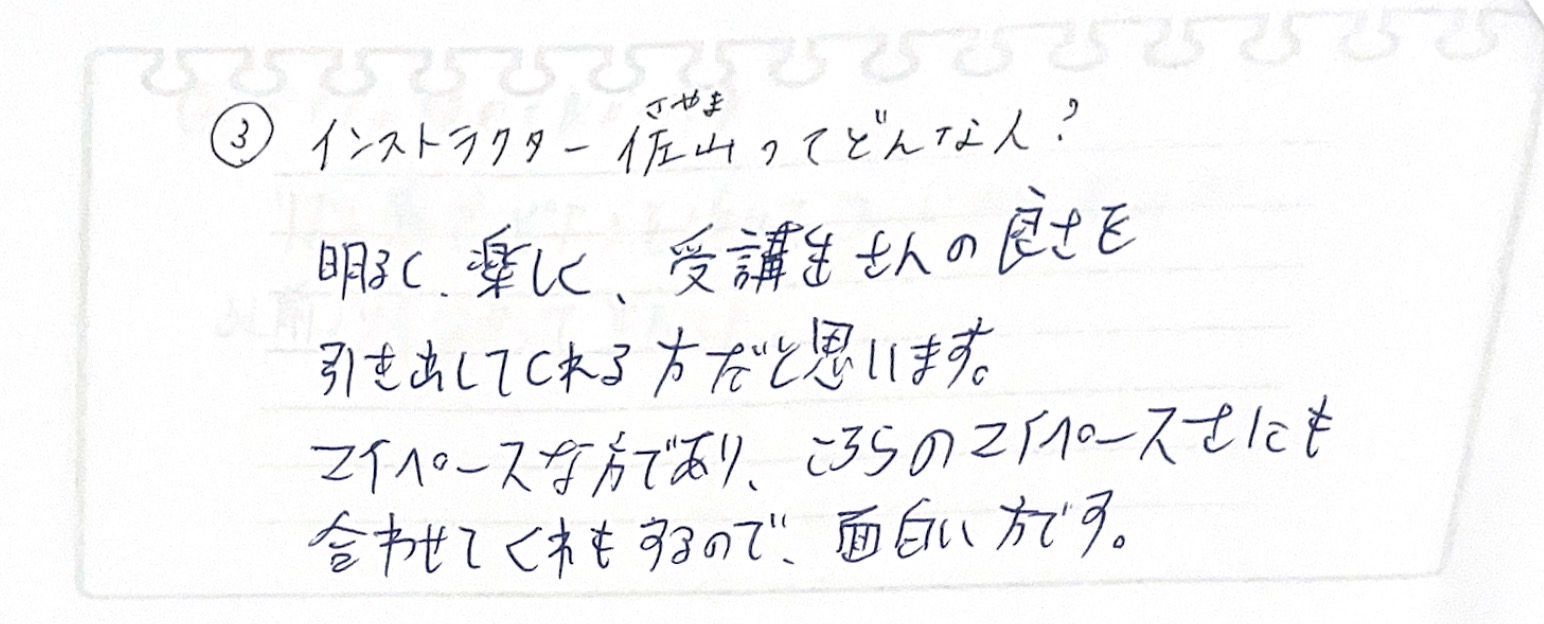 ③ インストラクター佐山ってどんな人?
さやま
明るく、楽しく、受講生さんの良さを
引き出してくれる方だと思います。
マイペースな方であり、こちらのマイペースさにも
合わせてくれもするので、面白い方です。